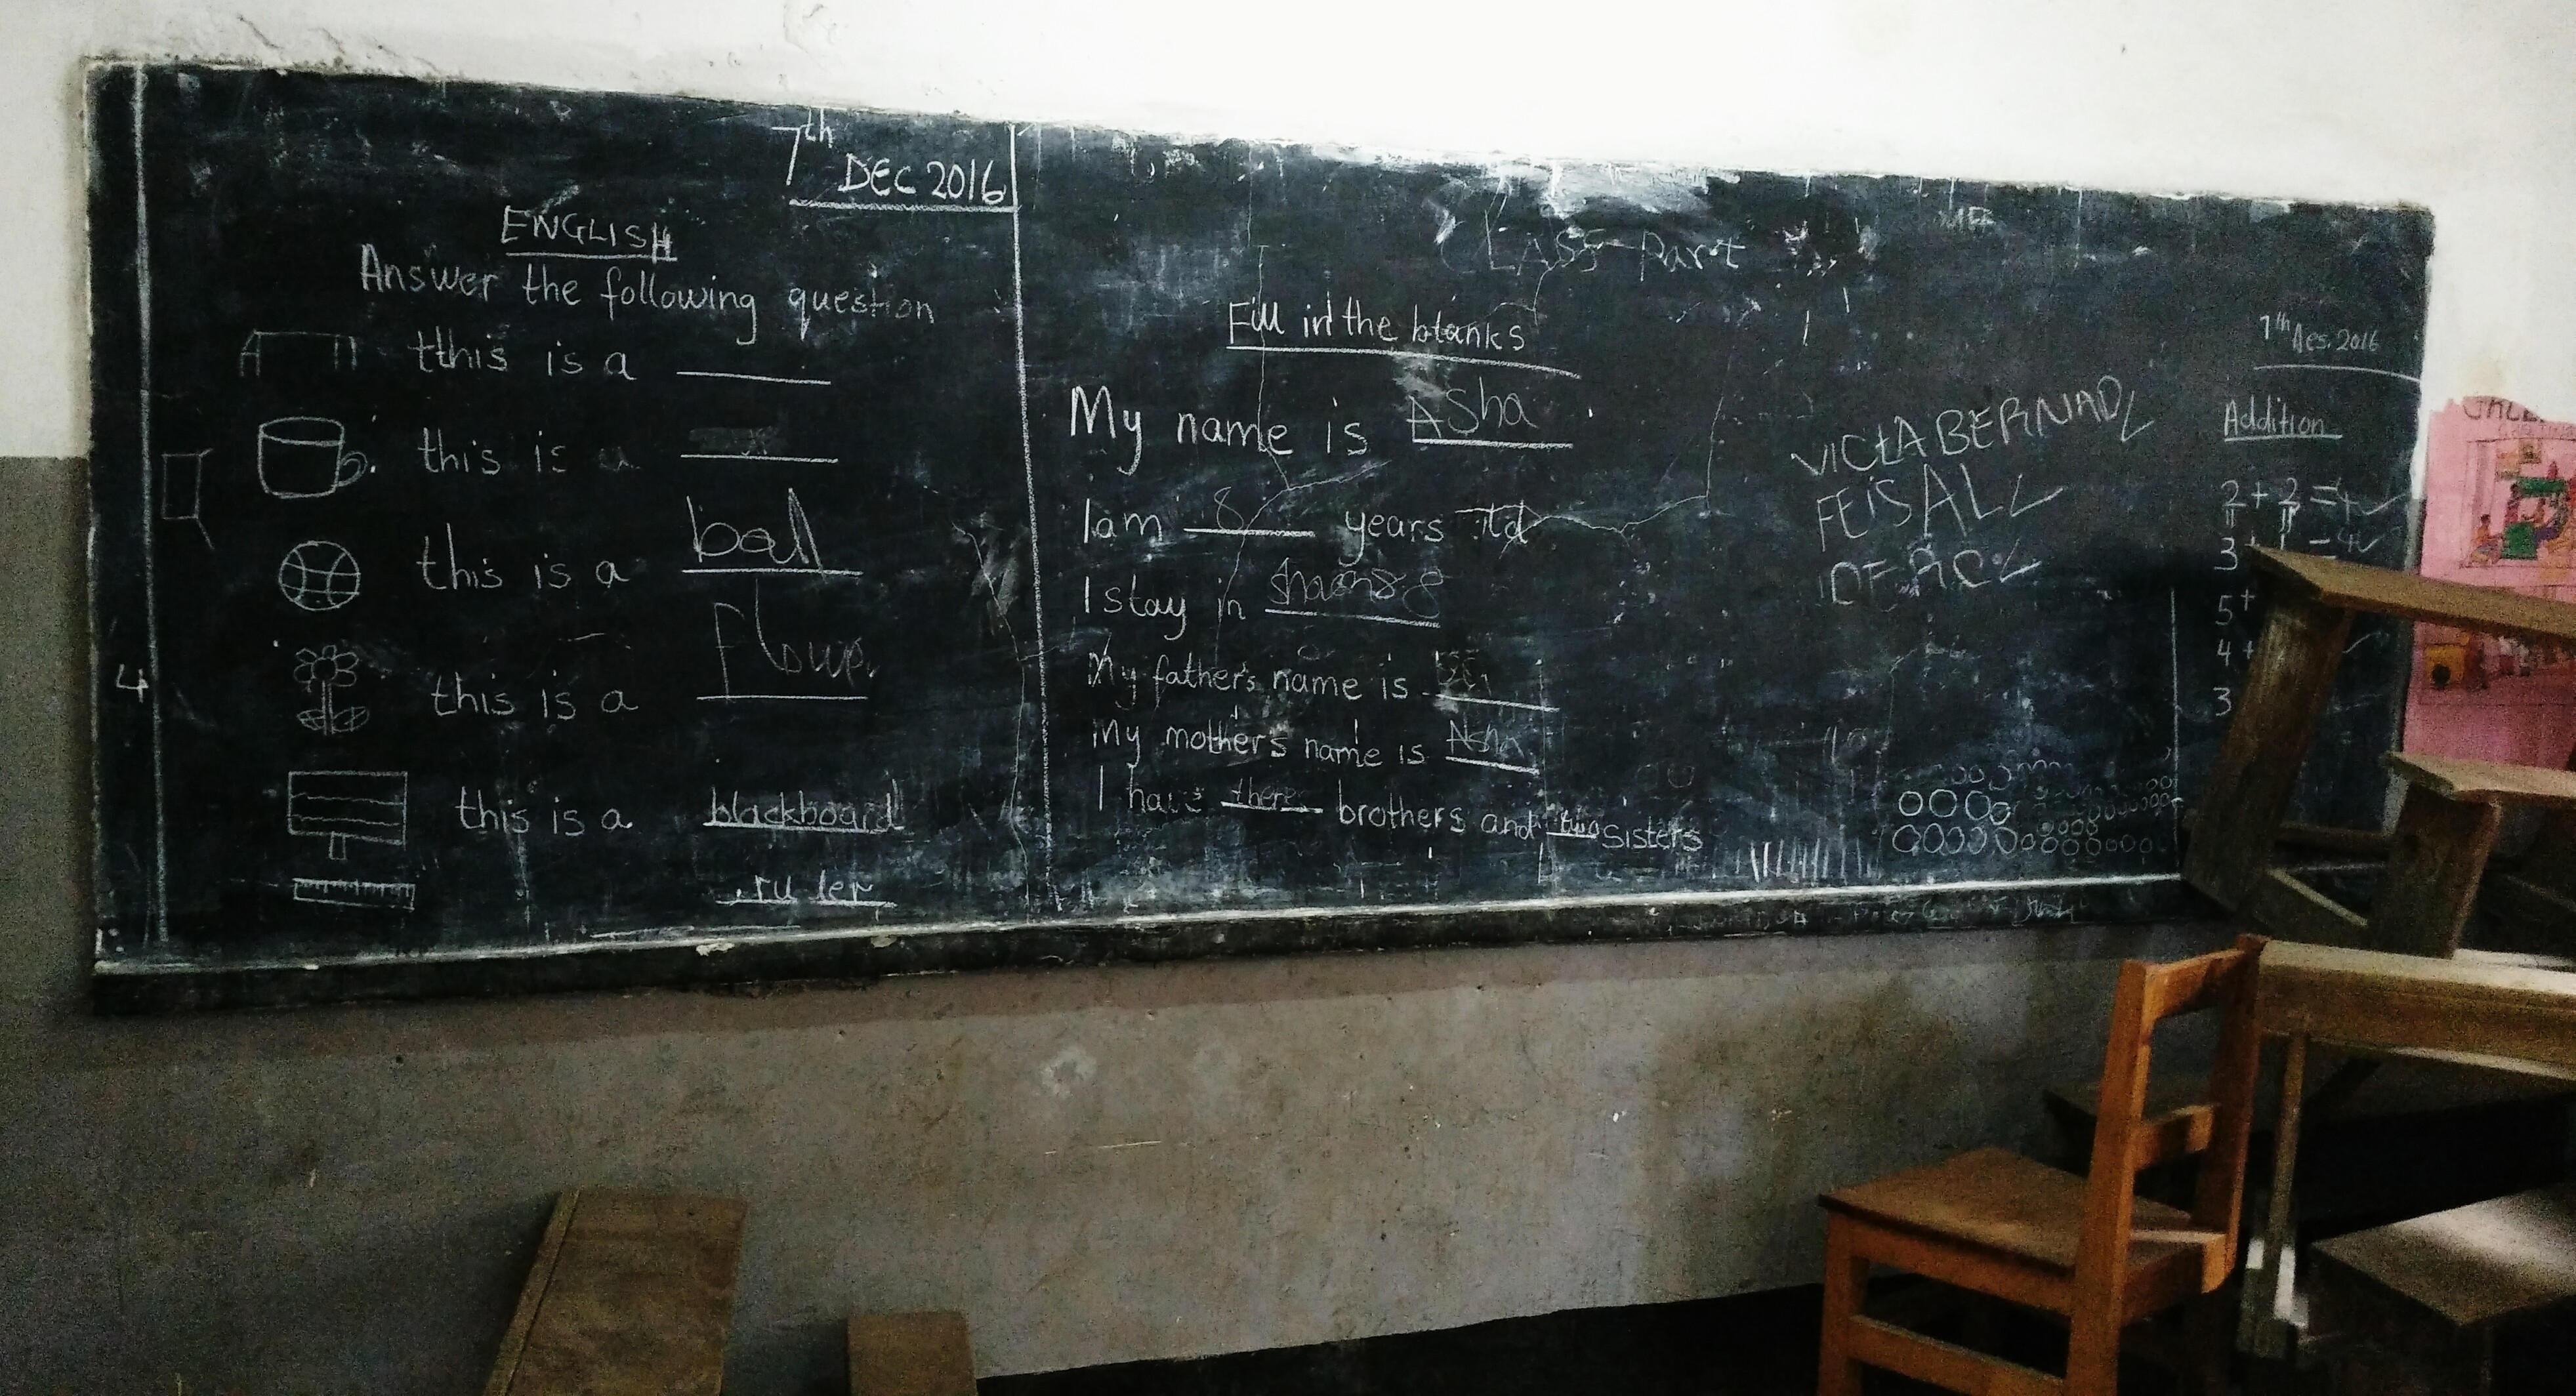 7th
DEC 2016
ENGLISH
Answer the following question
tthis is a
this is a
this is a ball
this is a
this is a blackboard
ruler
4
CLASS Part
Fill in the blanks
My name is ASha
I am 8 years
I stay in
My father's name is
My mother's name is Asha
I have there brothers and two sisters
VICTA BERNAD
FEISAL
7th Des. 2016
Addition
2 + 2 = 4
3 + 1 = 4
5 +
4 +
3